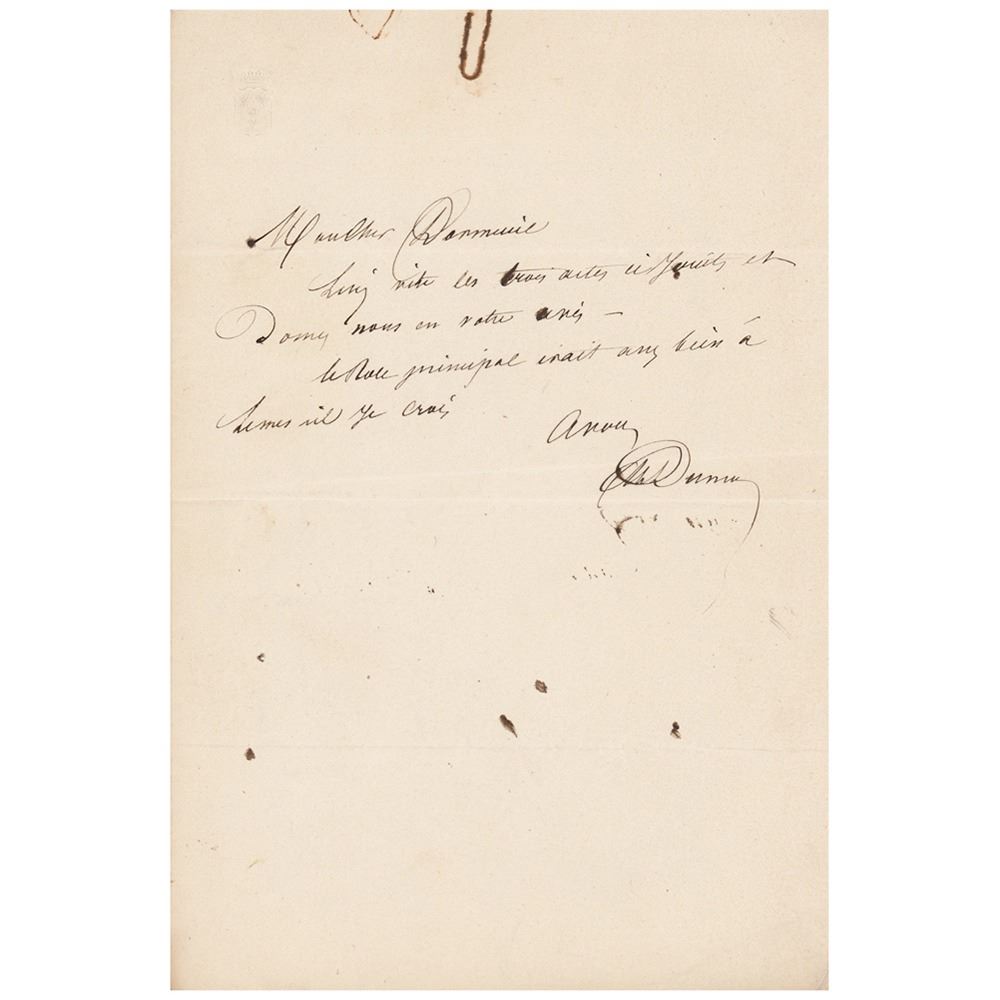 Mon Cher Dormeuil
Lisez vite les trois actes ci joints et
Donnez nous en votre avis –
le Role principal irait assez bien à
je crois
A vous
Alex Dumas